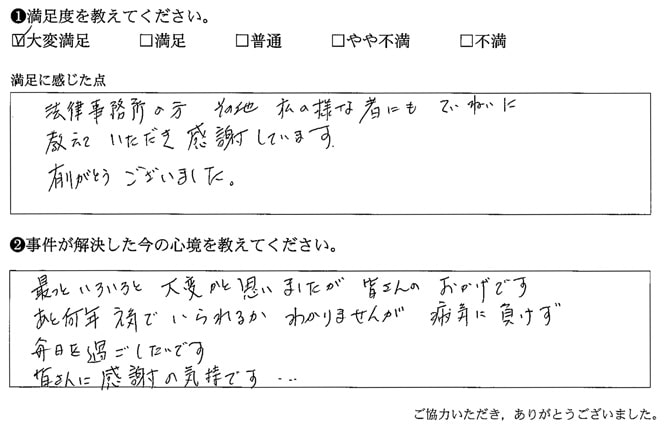 ❶満足度を教えてください。
☑大変満足 □満足 □普通 □やや不満 □不満
満足に感じた点
法律事務所の方 その他 私の様な者にも ていねいに
教えて いただき 感謝しています.
有りがとう ございました。
❷事件が解決した今の心境を教えてください。
最っと いろいろと 大変かと思いましたが 皆さんの おかげです
あと何年 元気で いられるか わかりませんが 病気に 負けず
毎日を過ごしたいです
皆さんに 感謝の気持です …
ご協力いただき，ありがとうございました。